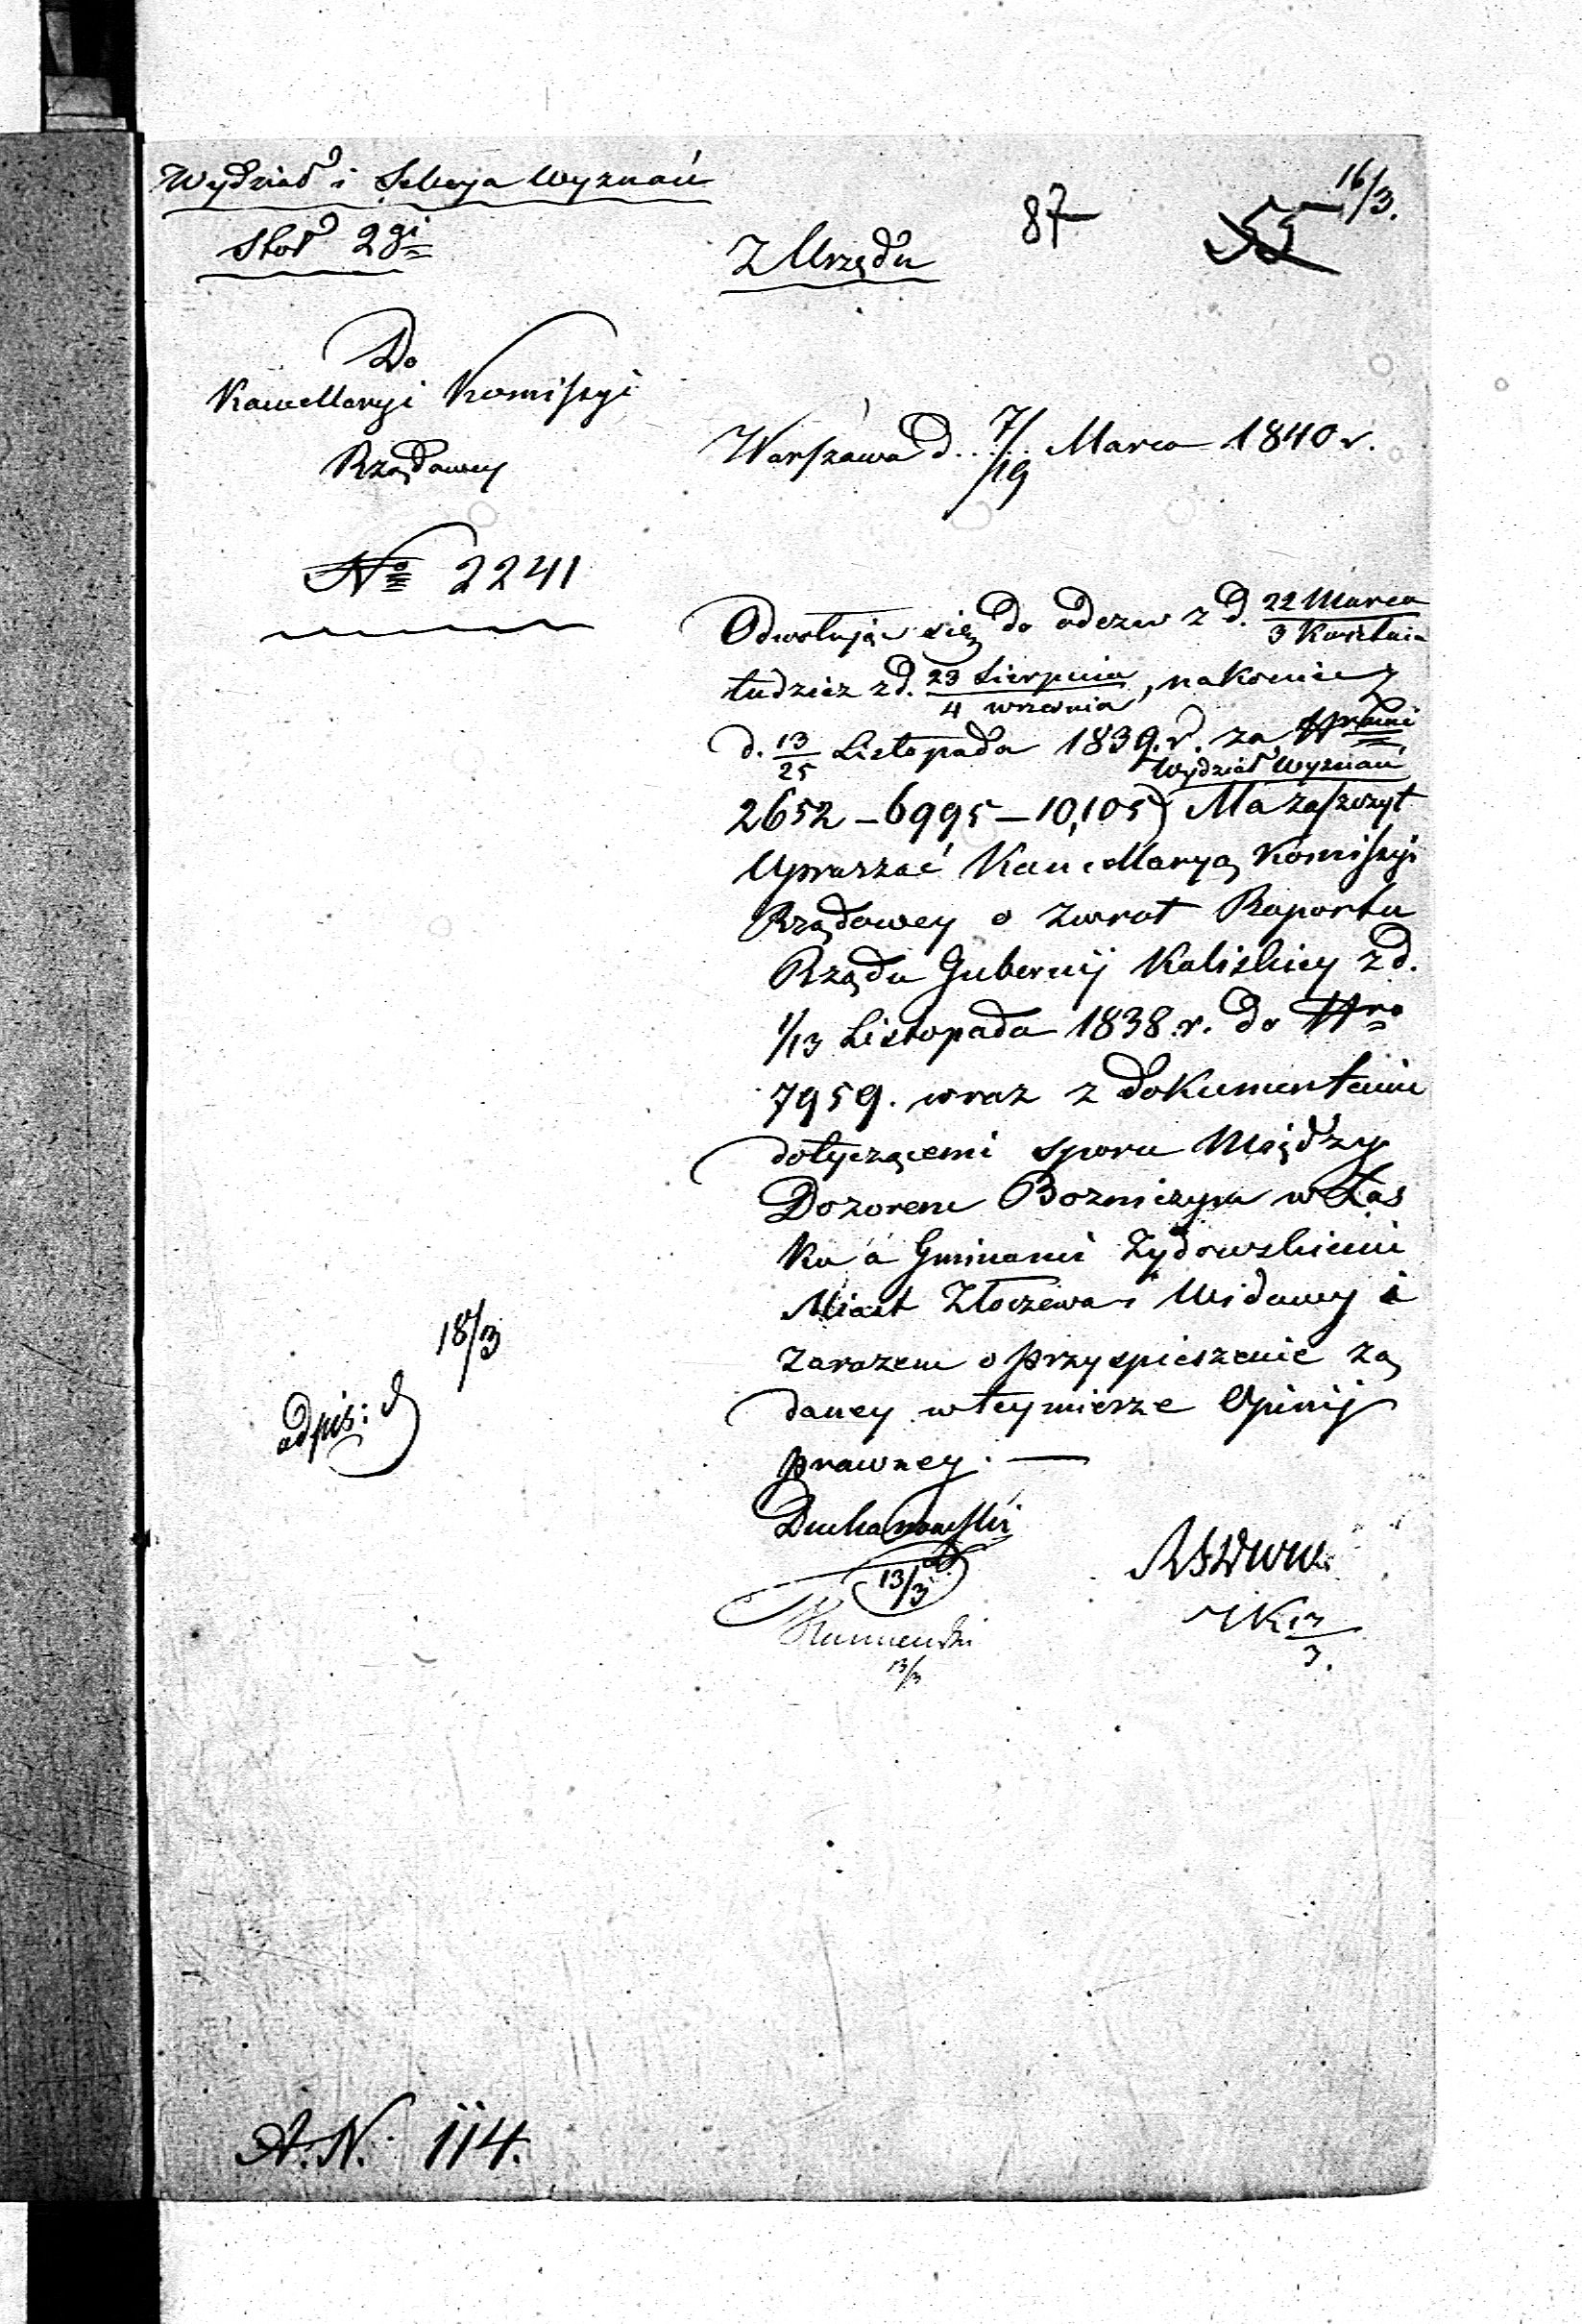 Wydział i Sekcya Wyznań
Stół 2gi
Z Urzędu
87
55
16/3.
Do
Kancellaryi Komissyi
Rządowey
Warszawa d. 7/19 Marca 1840 r.
No 2241
Odwołując się do odezw z d. 22 Marca / 3 Kwietnia
tudzież z d. 23 Sierpnia / 4 września, nakoniec z
d. 13/25 Listopada 1839. r. za Nrami
Wydział Wyznań
2652 – 6995 – 10,105) Ma zaszczyt
Upraszać Kancellaryą Komissyi
Rządowey o zwrot Raportu
Rządu Gubernij Kaliskiey z d.
1/13 Listopada 1838. r. do Nro
7959. wraz z dokumentami
dotyczącemi sporu Między
Dozorem Bozniczym w Łas
ku a Gminami Żydowskiemi
Miast Złoczewa i Widawy i
zarazem o przyspieszenie żą
daney w tey mierze Opinij
prawney. —
18/3
odpis:
13/3
13/3
13/3.
A. N. 114.